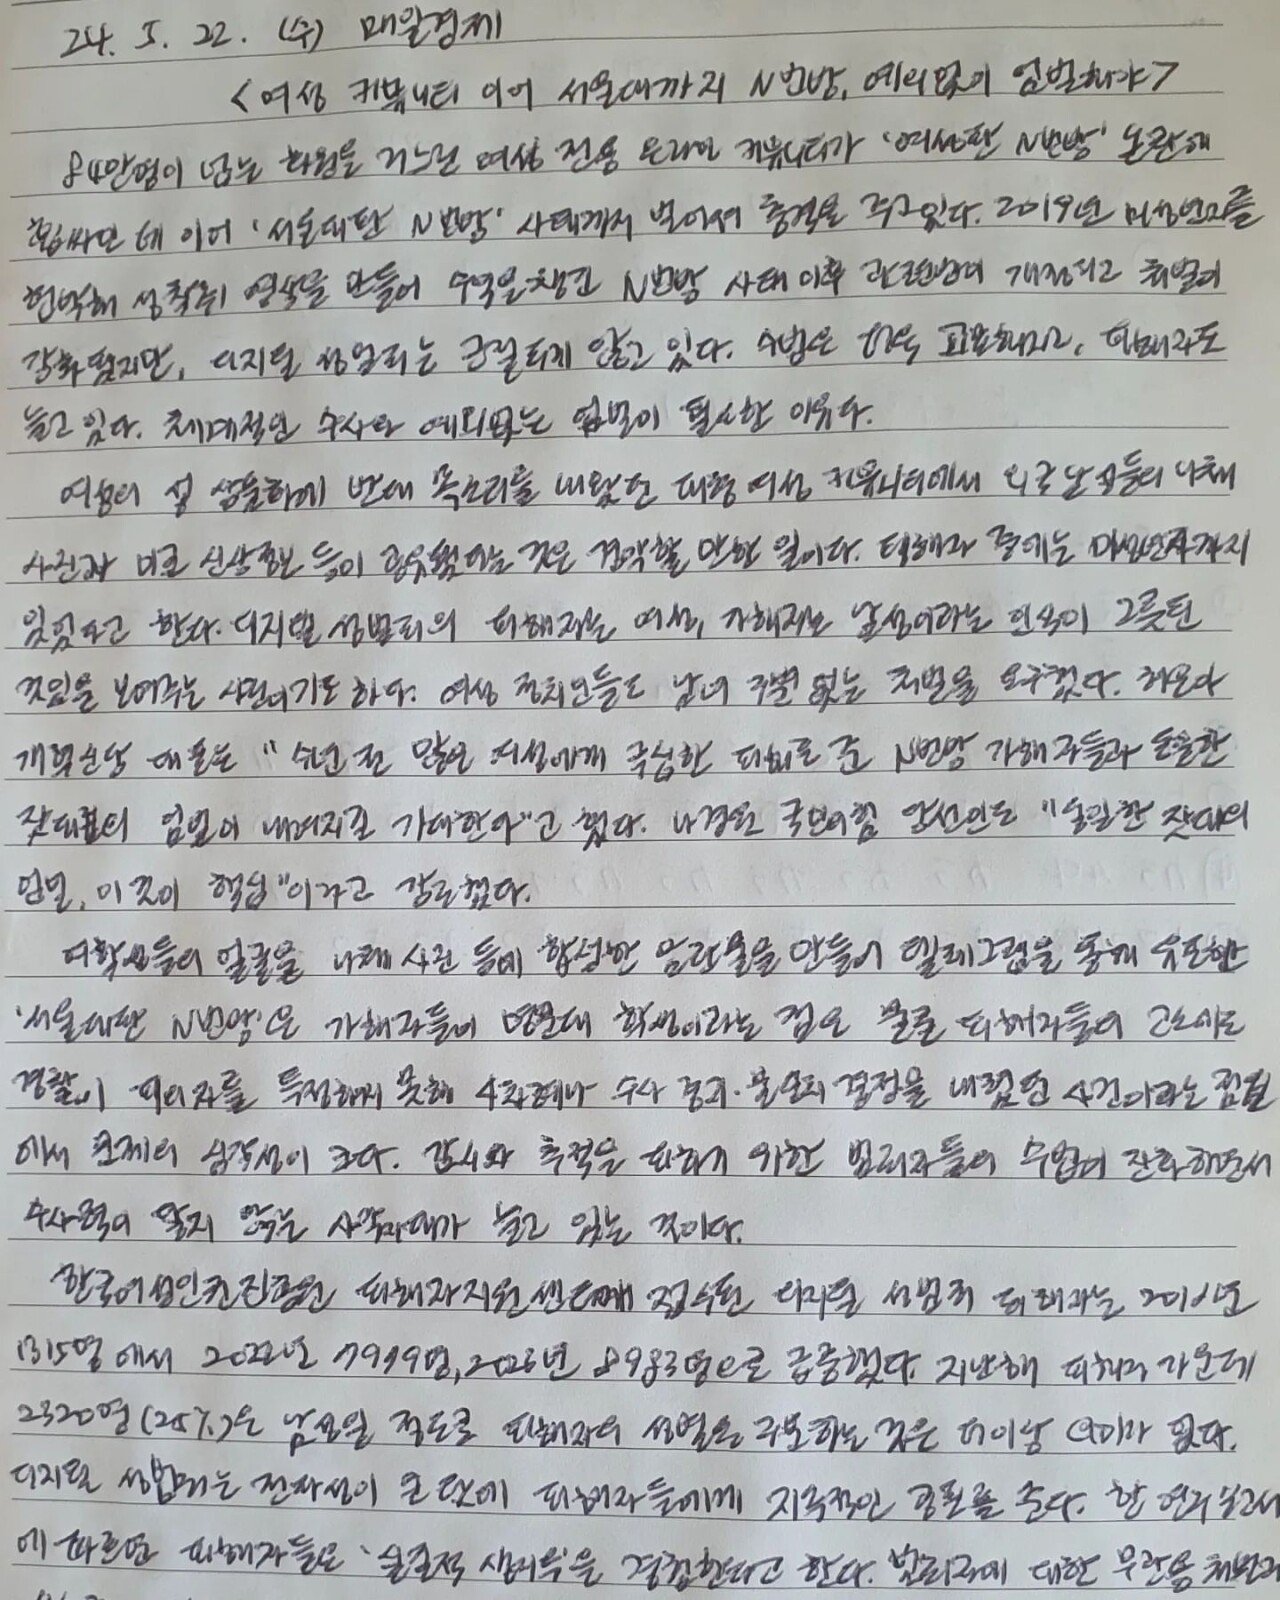 24. 5. 22. (수) 매일경제
<여성 커뮤니티 이어 서울대까지 N번방, 예외없이 엄벌해야>
84만명이 넘는 회원을 거느린 여성 전용 온라인 커뮤니티가 '여성판 N번방' 논란에
휩싸인 데 이어 '서울대판 N번방' 사태까지 벌어져 충격을 주고있다. 2019년 미성년자를
협박해 성착취 영상을 만들어 수익을 챙긴 N번방 사태 이후 관련법이 개정되고 처벌이
강화됐지만, 디지털 성범죄는 근절되지 않고 있다. 수법은 더욱 교묘해지고, 피해자도
늘고 있다. 체계적인 수사와 예외없는 엄벌이 필요한 이유다.
여성의 성 상품화에 반대 목소리를 내왔던 대형 여성 커뮤니티에서 외국 남성들의 나체
사진과 비교 신상정보 등이 공유됐다는 것은 경악할 만한 일이다. 피해자 중에는 미성년자까지
있었다고 한다. 디지털 성범죄의 피해자는 여성, 가해자는 남성이라는 인식이 그릇된
것임을 보여주는 사건이기도 하다. 여성 정치인들도 남녀 구별 없는 처벌을 요구했다. 허은아
개혁신당 대표는 "수년 전 많은 여성에게 극심한 피해를 준 N번방 가해자들과 동일한
잣대로의 엄벌이 내려지길 기대한다"고 했다. 나경원 국민의힘 당선인도 "동일한 잣대의
엄벌, 이것이 핵심"이라고 강조했다.
여학생들의 얼굴을 나체 사진 등에 합성한 음란물을 만들어 텔레그램을 통해 유포한
'서울대판 N번방'은 가해자들이 명문대 학생이라는 점은 물론 피해자들의 고소에도
경찰이 피의자를 특정하지 못해 4차례나 수사 중지·불송치 결정을 내렸던 사건이라는 점
에서 문제의 심각성이 크다. 감시와 추적을 피하기 위한 범죄자들의 수법이 진화하면서
수사력이 닿지 않는 사각지대가 늘고 있는 것이다.
한국여성인권진흥원 피해자지원센터에 접수된 디지털 성범죄 피해자는 2018년
1315명에서 2022년 7979명, 2023년 8983명으로 급증했다. 지난해 피해자 가운데
2320명(25%)은 남성일 정도로 피해자의 성별을 구분하는 것은 더이상 의미가 없다.
디지털 성범죄는 전파성이 큰 탓에 피해자들에게 지속적인 공포를 준다. 한 연구보고서
에 따르면 피해자들은 을 경험한다고 한다. 범죄자에 대한 무관용